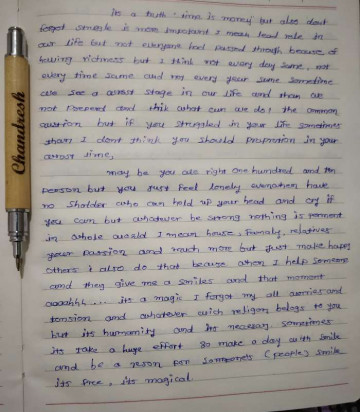 its a truth time is money but also dont
forgot simple is more important I mean lead role in
our life but not everyone had passed through because of
having richness but I think not every day same, not
every time same and not every year same sometime
we see a worst stage in our life and than we
not prepered and think what can we do! the common
question but if you struggled in your life sometimes
than I dont think you should in your
worst time,
may be you are right one hundred and ten
person but you just feel lonely have
no sholder who can hold up your head and cry if
you can but whatever be strong nothing is
in whole world I mean house, Family, relatives
your passion and much more but just make happy
others i also do that because when I help someone
and they give me a smiles and that moment
aaaahhh... its a magic I forgot my all worries and
tension and whatever wich religon belogs to you
but its humanity and its necessary sometimes
its take a huge effort so make a day with smile
and be a reson for someone's (people) smile
its free, its magical
Chandresh